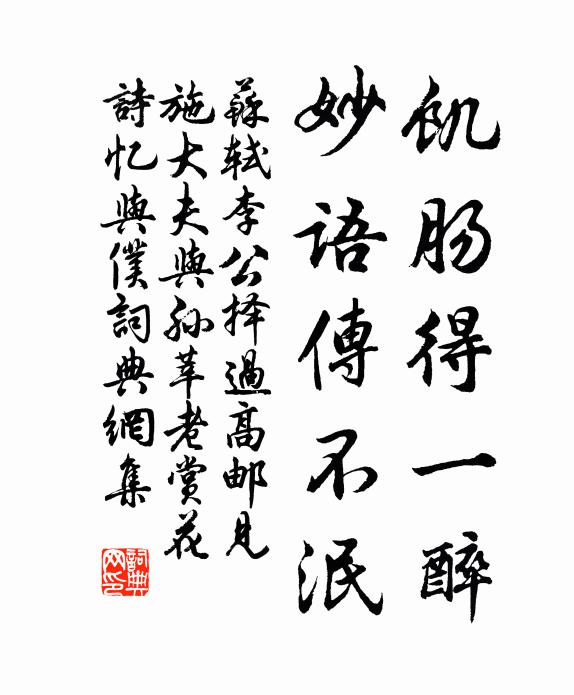 飢肠得一醉
妙語傳不泯
蘇軾李公择過高邮見
施大夫與孙莘老賞花
詩忆與僕詞典網集
詞典网印